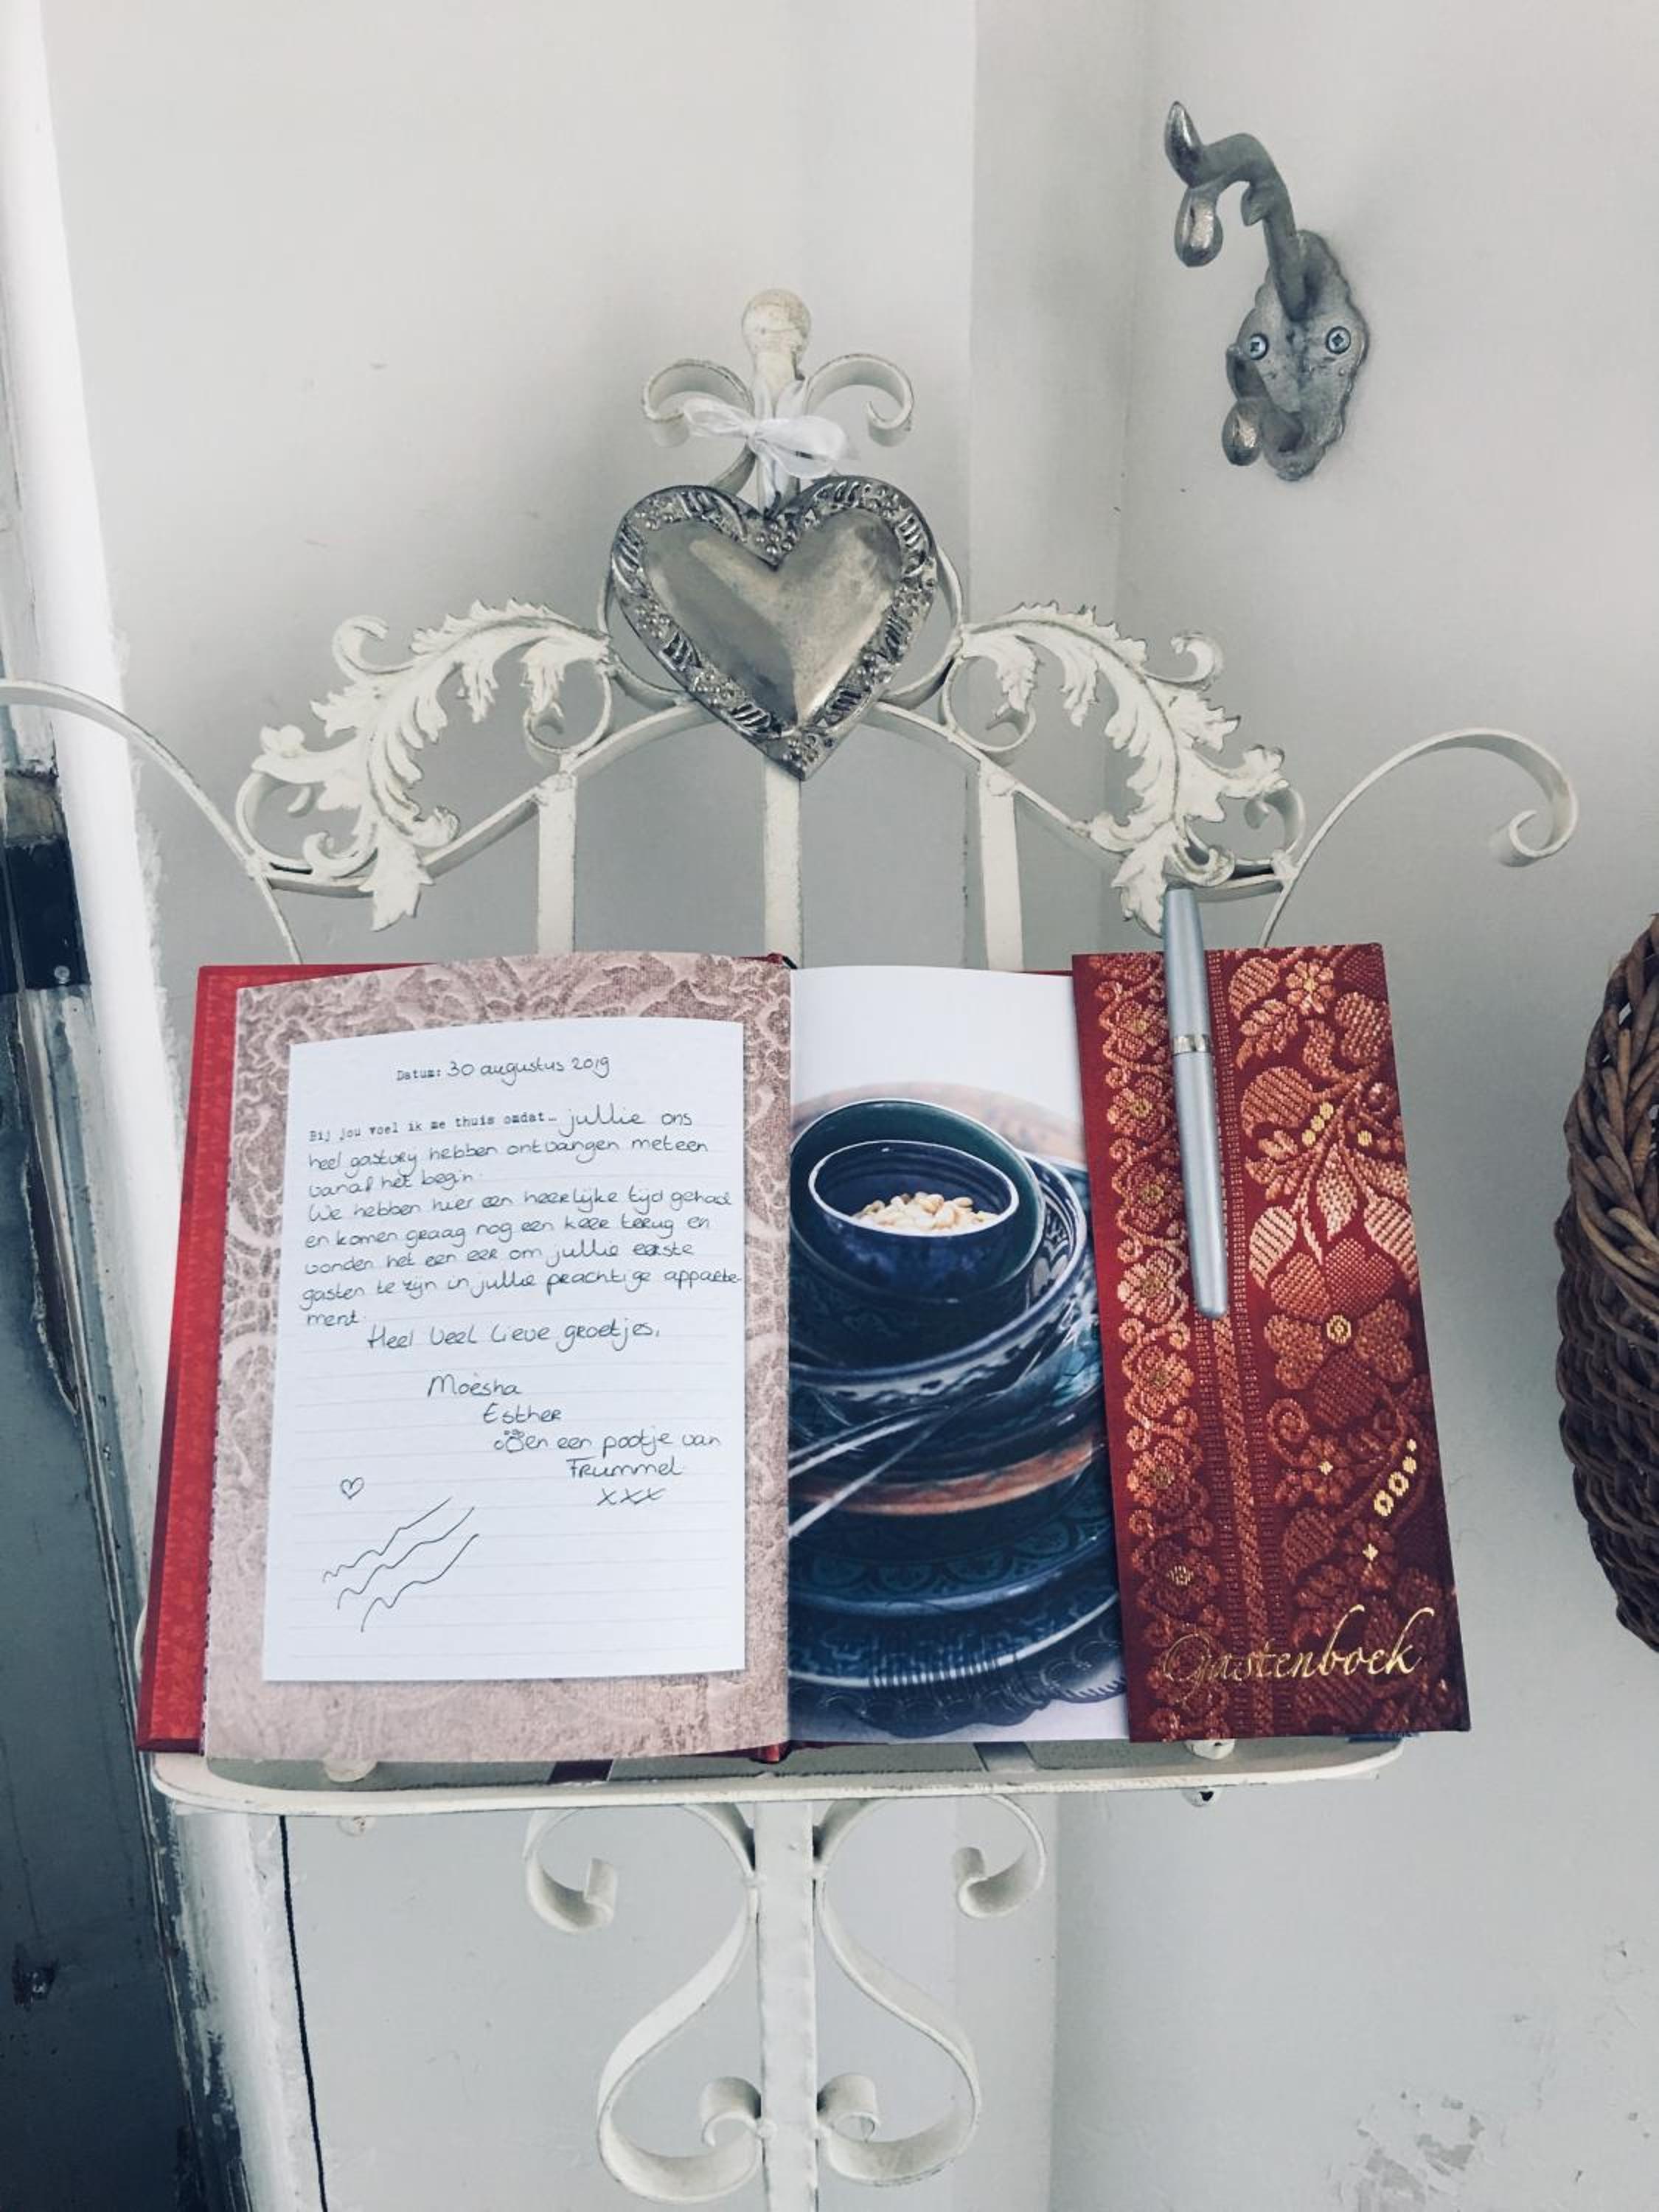 Datum: 30 augustus 2019
Bij jou voel ik me thuis omdat... jullie ons
heel gastvrij hebben ontvangen meteen
vanaf het begin.
We hebben hier een heerlijke tijd gehad
en komen graag nog een keer terug en
vonden het een eer om jullie eerste
gasten te zijn in jullie prachtige apparte-
ment.
Heel veel lieve groetjes,
Moësha
Esther
en een pootje van
Frummel
xxx
Gastenboek